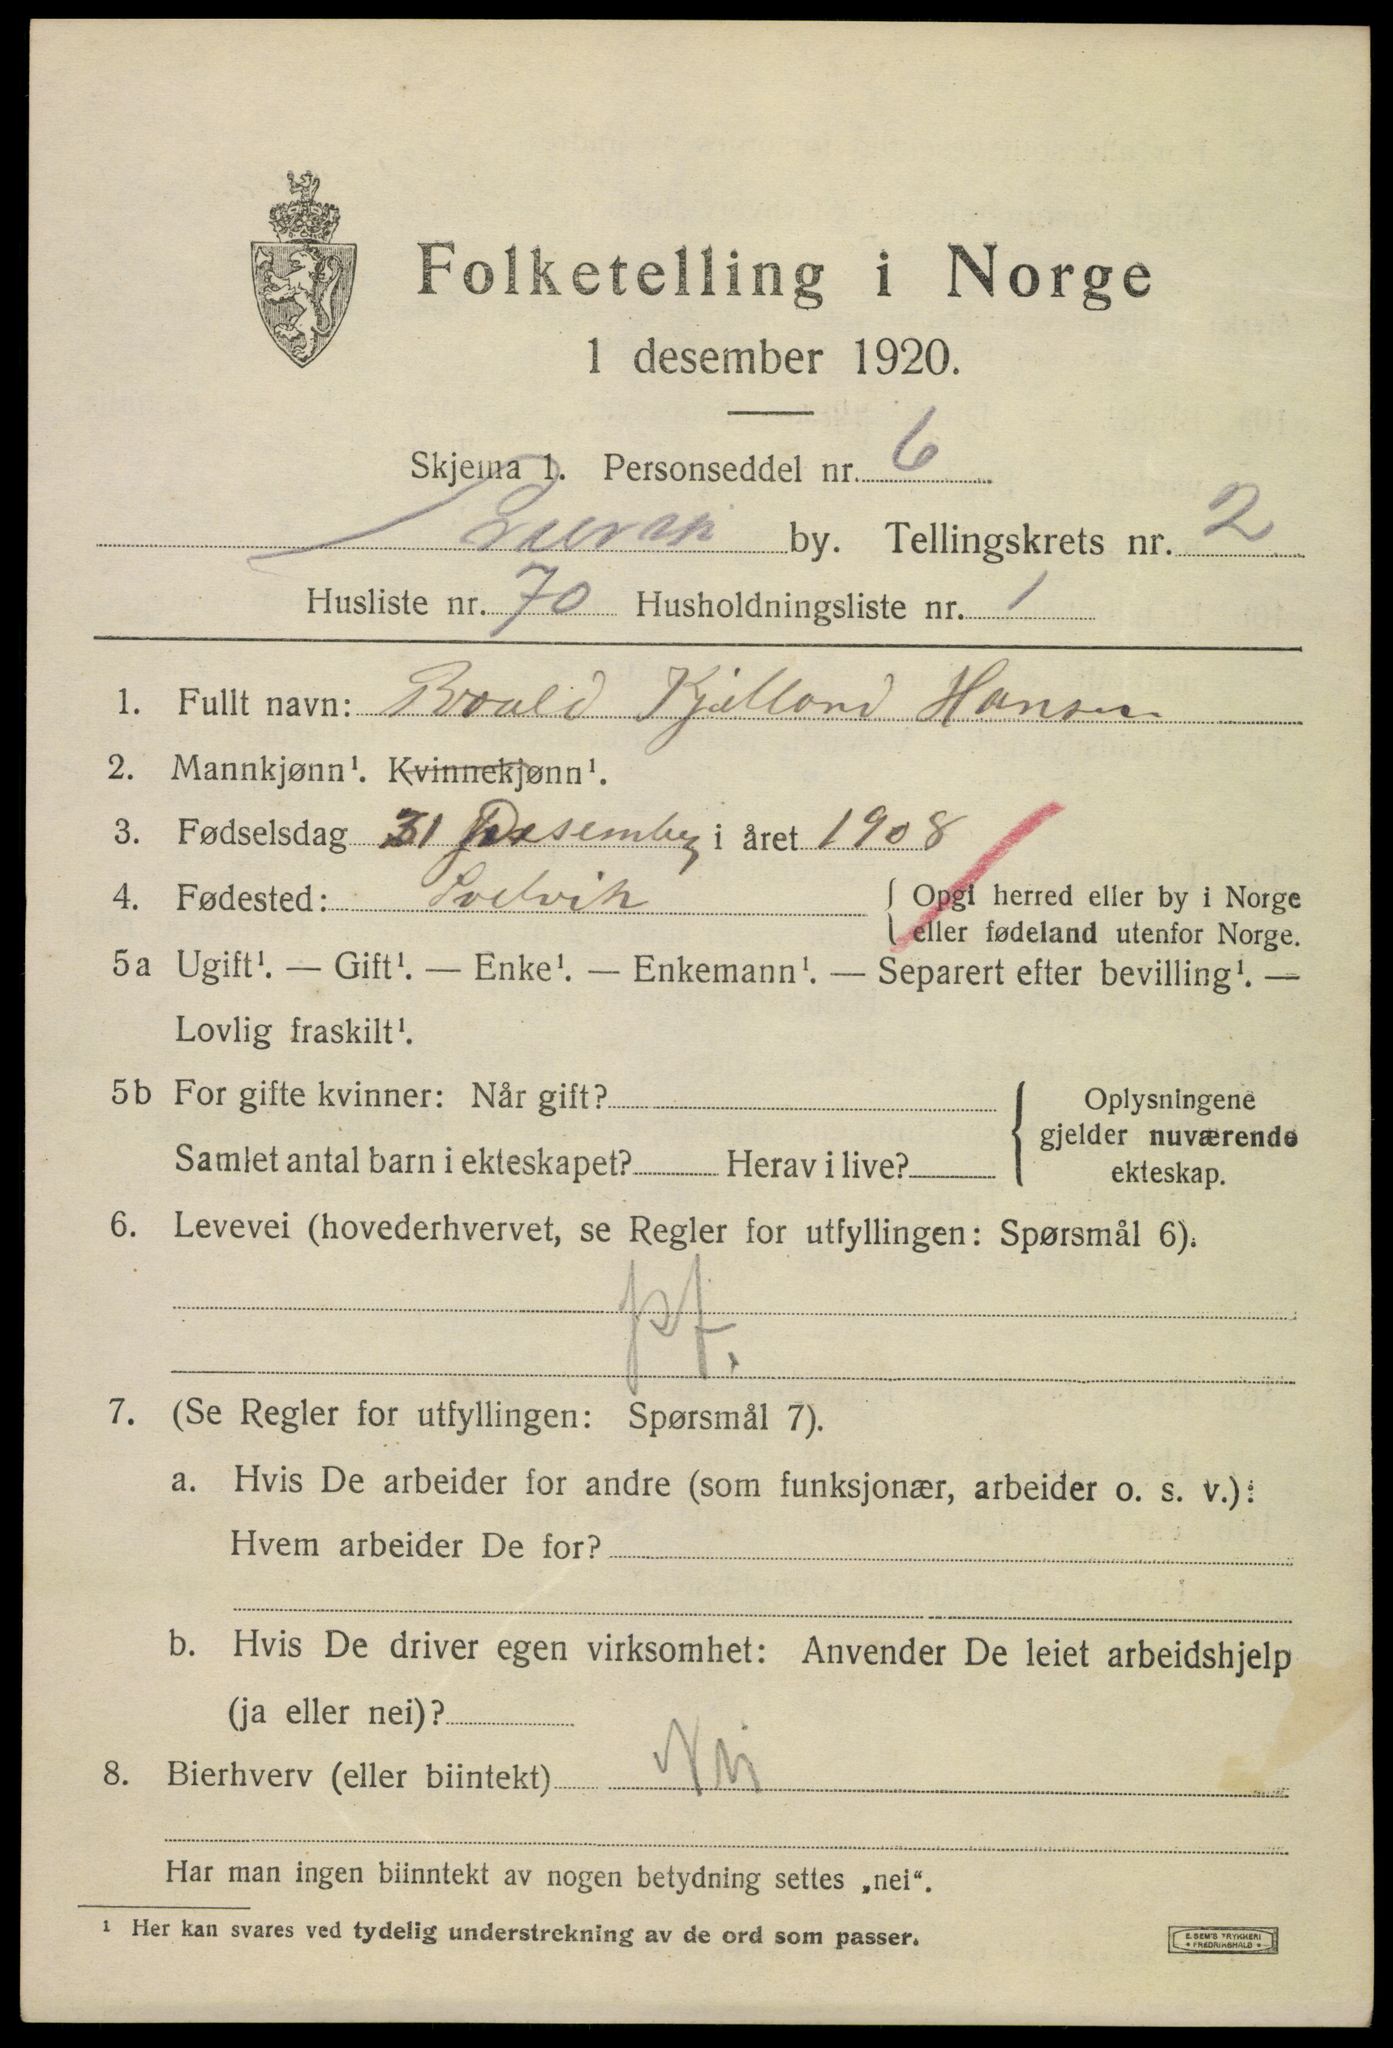 Folketelling i Norge
1 desember 1920.
Skjema 1. Personseddel nr. 6
Svelvik by. Tellingskrets nr. 2
Husliste nr. 70 Husholdningsliste nr. 1
1. Fullt navn: Kjelland Hansen
2. Mannkjønn¹. Kvinnekjønn¹.
3. Fødselsdag 31 Desember i året 1908
4. Fødested: Svelvik { Opgi herred eller by i Norge
eller fødeland utenfor Norge.
5a Ugift¹. — Gift¹. — Enke¹. — Enkemann¹. — Separert efter bevilling¹. —
Lovlig fraskilt¹.
5b For gifte kvinner: Når gift?
Samlet antal barn i ekteskapet? Herav i live?
{ Oplysningene
gjelder nuværende
ekteskap.
6. Levevei (hovederhvervet, se Regler for utfyllingen: Spørsmål 6).
pf.
7. (Se Regler for utfyllingen: Spørsmål 7).
a. Hvis De arbeider for andre (som funksjonær, arbeider o. s. v.):
Hvem arbeider De for?
b. Hvis De driver egen virksomhet: Anvender De leiet arbeidshjelp
(ja eller nei)?
8. Bierhverv (eller biintekt) Nei
Har man ingen biinntekt av nogen betydning settes „nei“.
¹ Her kan svares ved tydelig understrekning av de ord som passer.
E. SEM'S TRYKKERI
• FREDRIKSHALD •